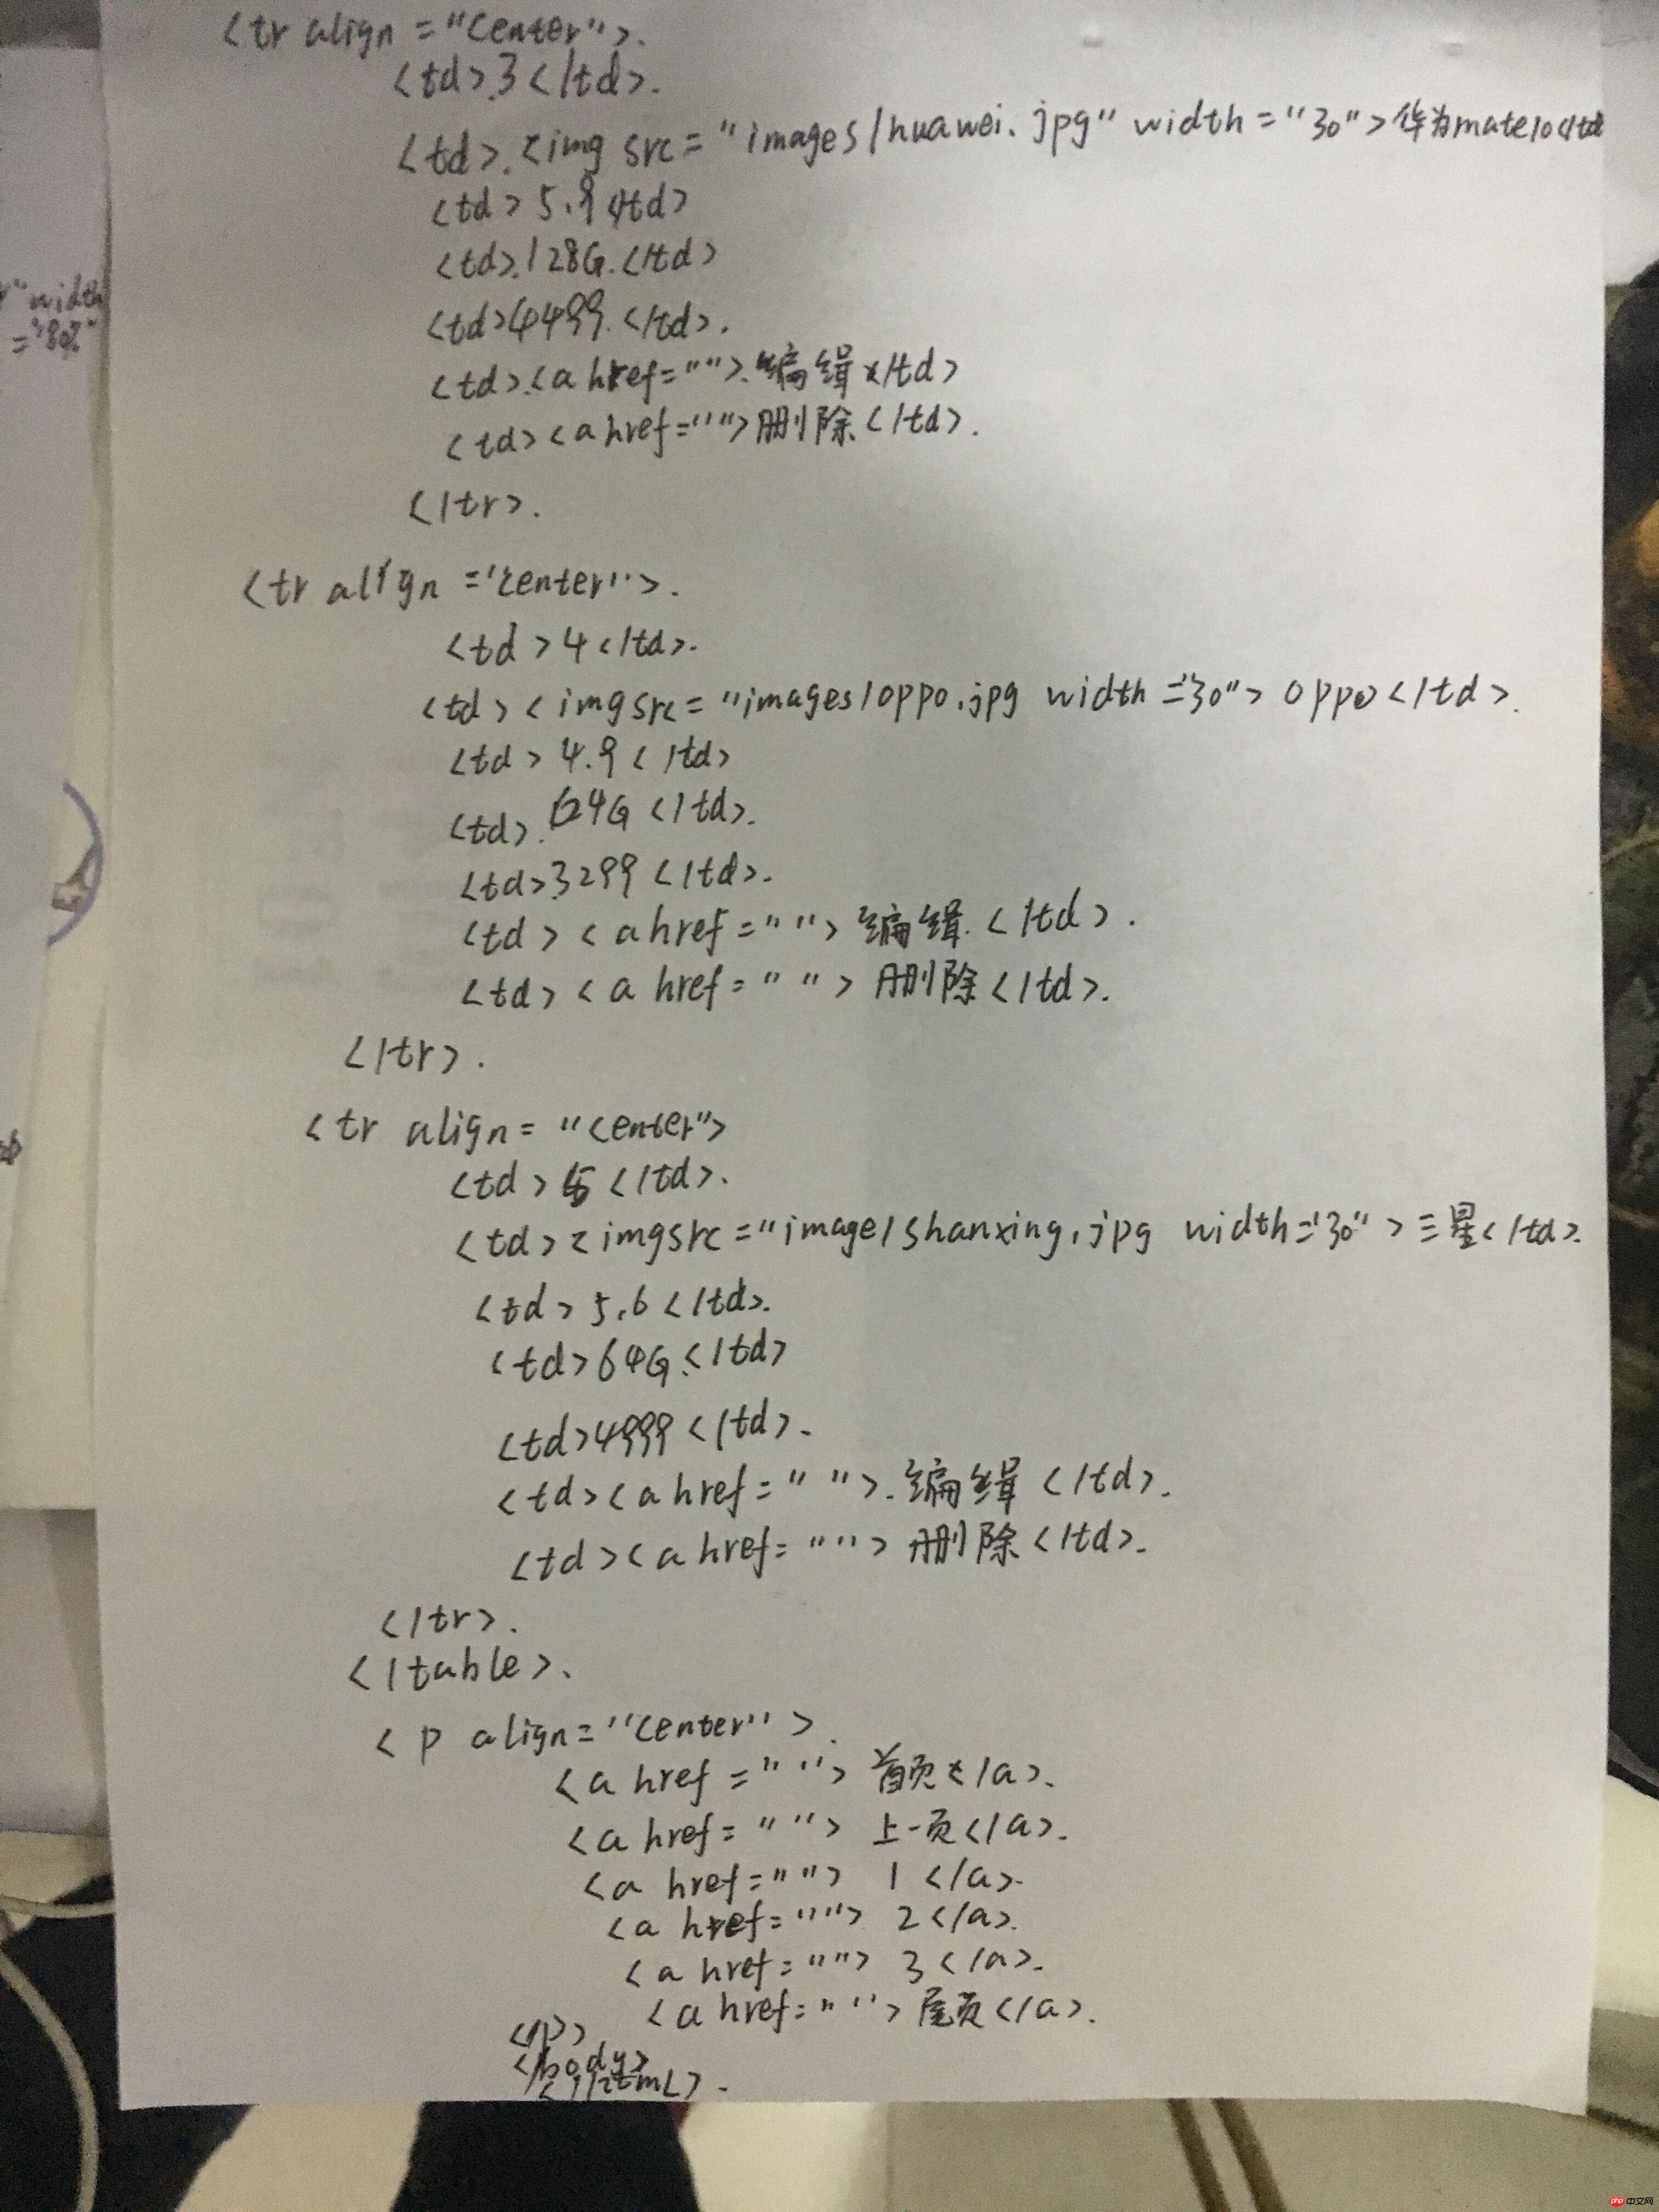 <tr align="center">.
<td>.3</td>.
<td>.<img src="images/huawei.jpg" width="30">华为mate10</td
<td>5.9</td>
<td>.128G.</td>
<td>4499.</td>.
<td>.<a href="">.编缉</td>
<td><a href="">删除</td>.
</tr>.
<tr align="center">.
<td>4</td>.
<td><imgsrc="images/oppo.jpg width="30">oppo</td>.
<td>4.9</td>
<td>.64G</td>.
<td>3299</td>.
<td><a href="">编缉.</td>.
<td><a href="">删除</td>.
</tr>.
<tr align="center">
<td>5</td>.
<td><imgsrc="image/shanxing.jpg width="30">三星</td>.
<td>5.6</td>.
<td>64G.</td>
<td>4999</td>.
<td><a href="">.编缉</td>.
<td><a href="">删除</td>.
</tr>.
</table>.
<p align="center">.
<a href="">首页</a>.
<a href="">上一页</a>.
<a href="">1</a>.
<a href="">2</a>.
<a href="">3</a>.
<a href="">尾页</a>.
</p>
</body>
</html>.
"width
="80%"
php 中文网